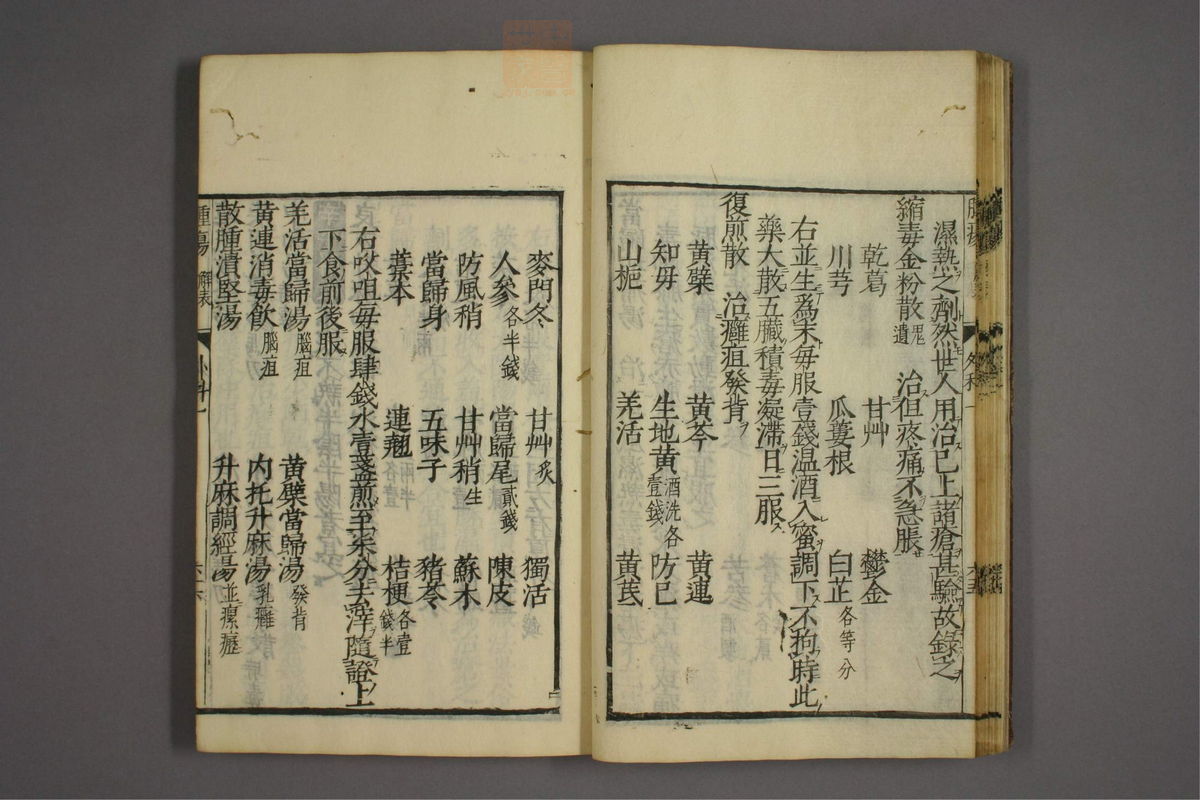 濕熱之劑然世人用治已上諸瘡甚驗故錄之
縮毒金粉散 鬼遺 治疽疼痛不急脹
乾葛 甘艸 鬱金
川芎 瓜蔞根 白芷 各等分
右並生為末每服壹錢温酒入蜜調下不拘時此
藥大散五臟積毒凝滯日三服
復煎散 治癰疽發背
黄檗 黄芩 黄連
知母 生地黄 酒洗各壹錢 防已
山栀 羌活 黄芪
麥門冬 甘艸 炙 獨活
人參 各半錢 當歸尾 貳錢 陳皮
防風稍 甘艸稍 生 蘇木
當歸身 五味子 猪苓
藁本 連翹 桔梗 各壹錢半
右㕮咀每服肆錢水壹盞煎至柒分去滓隨證上
下食前後服
羌活當歸湯 腦疽 黄檗當歸湯 發背
黄連消毒飲 腦疽 内托升麻湯 乳癰
散腫潰堅湯 升麻調經湯 並瘰癧
腫瘍 解表 外科一